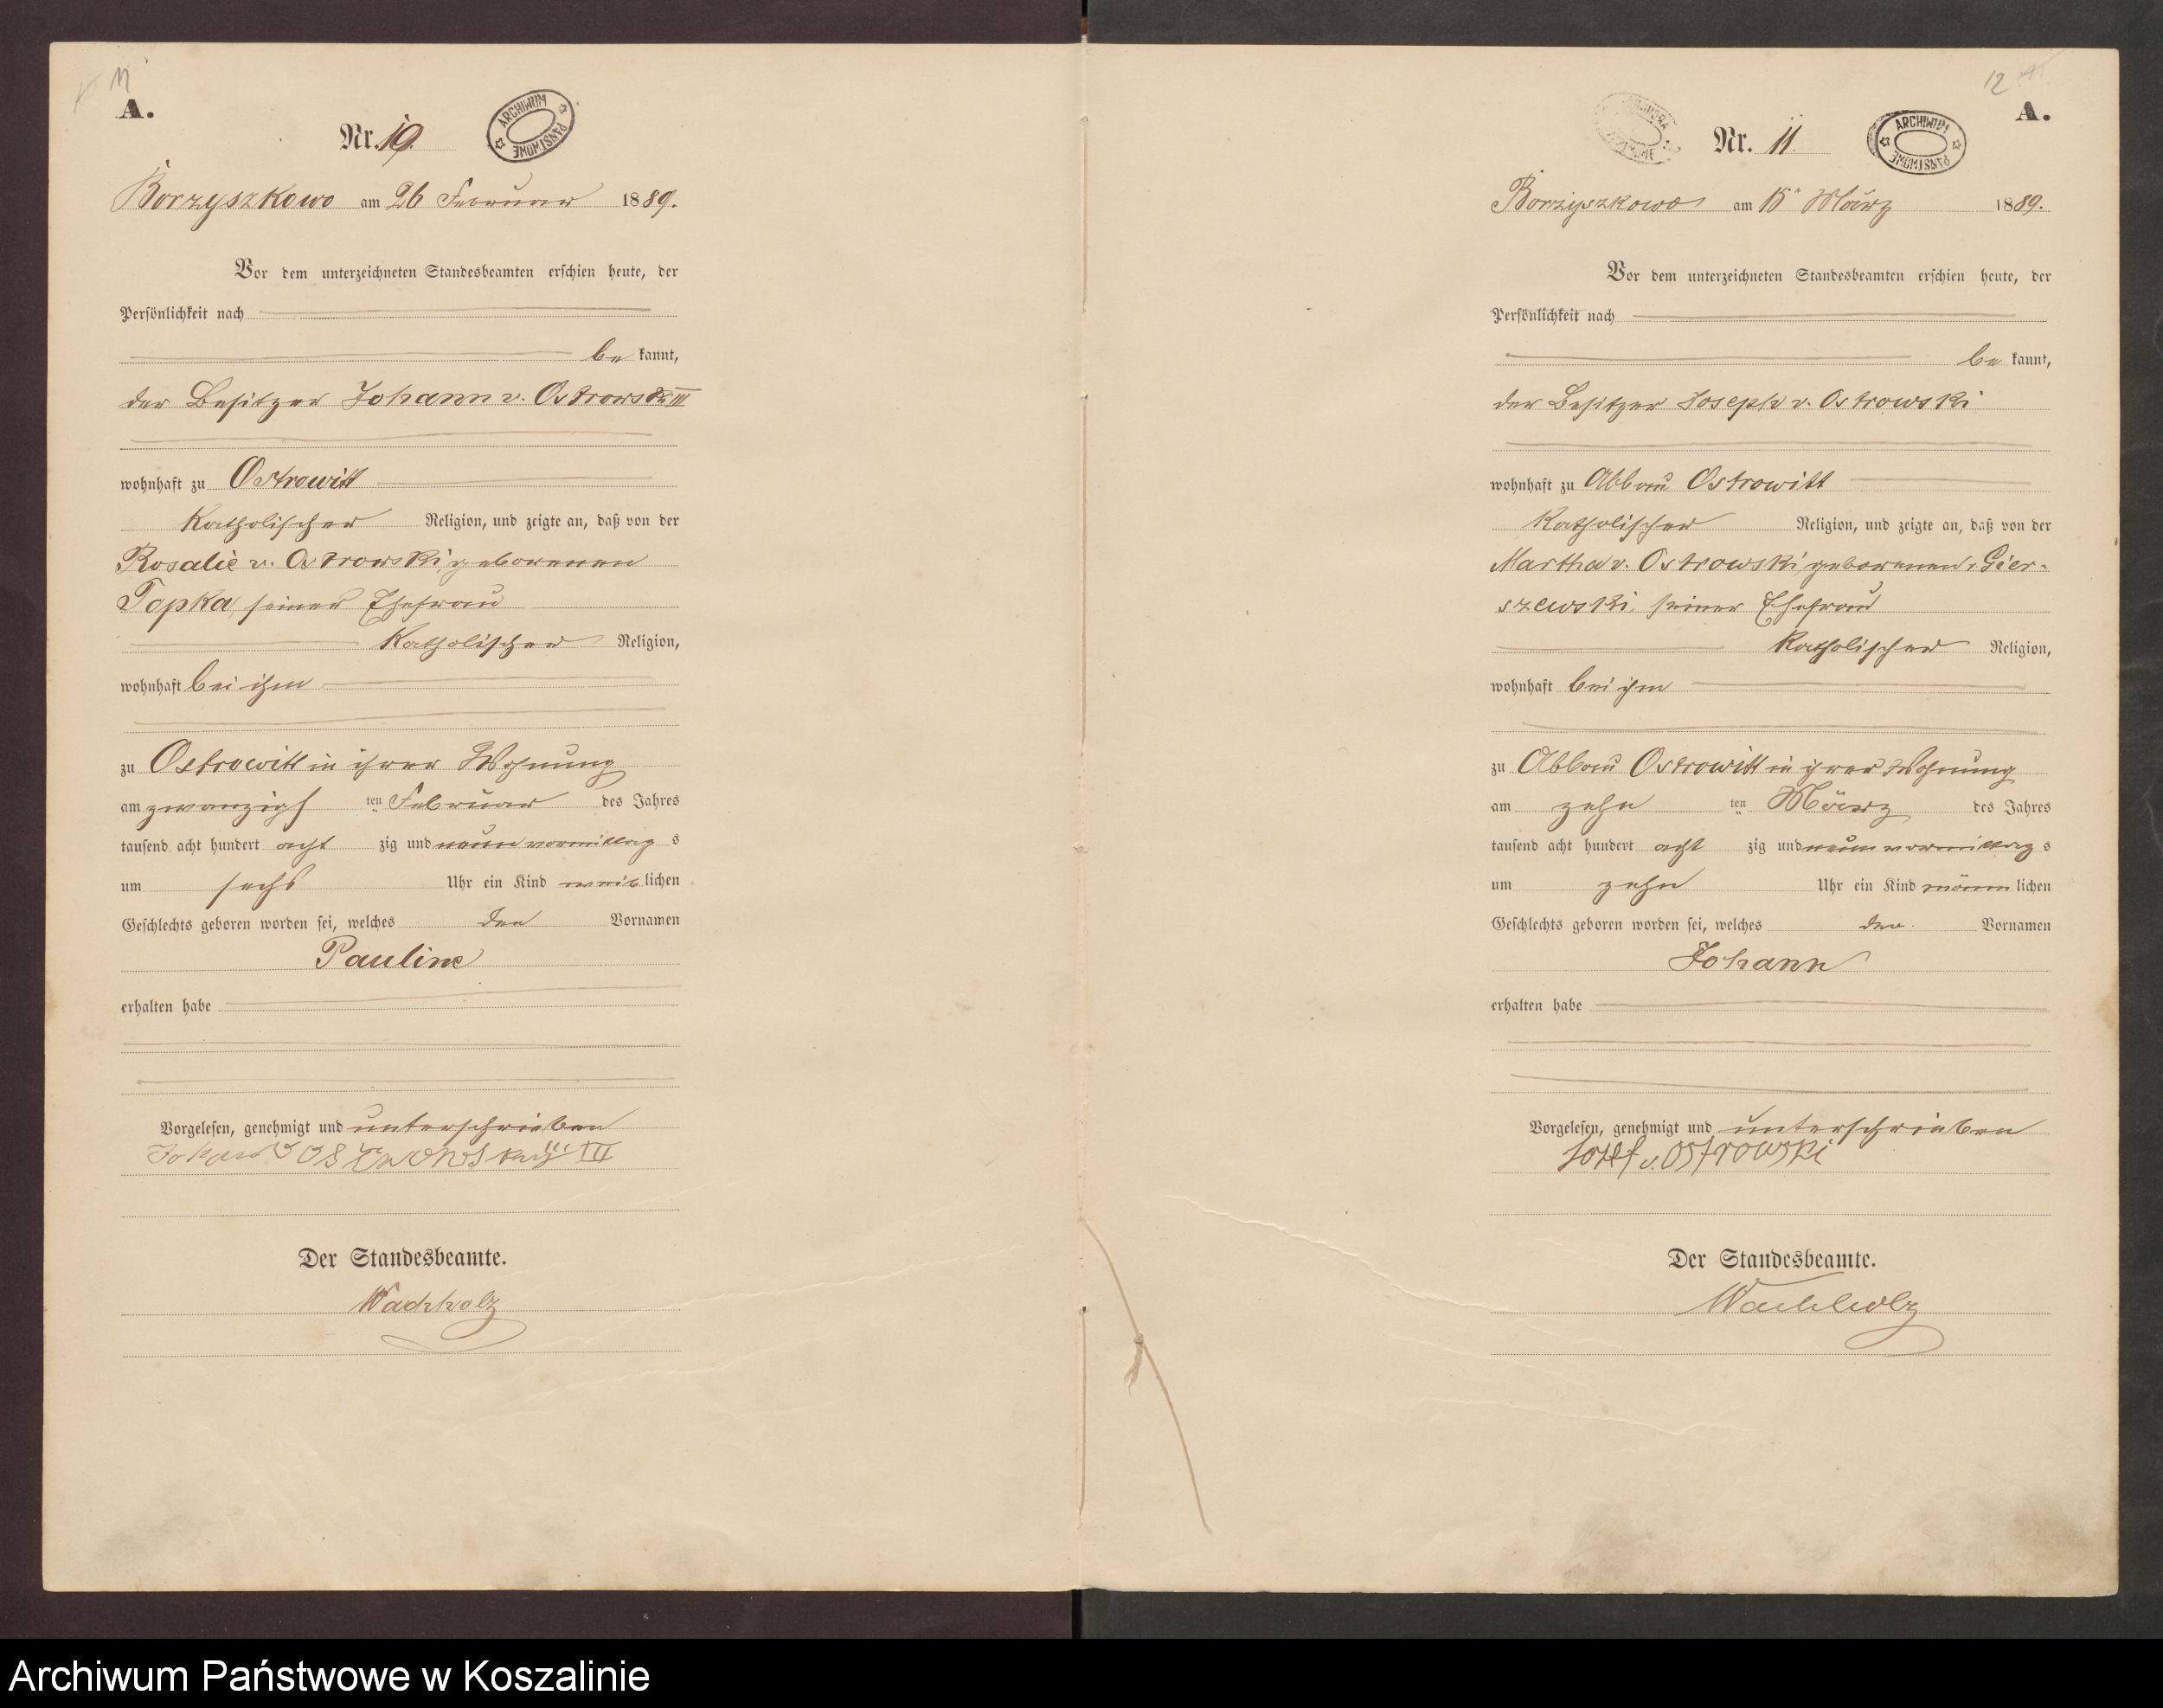 11
A.
Nr. 10.
ARCHIWUM PAŃSTWOWE
Borzyszkowo am 26 Februar 1889.
Vor dem unterzeichneten Standesbeamten erschien heute, der
Persönlichkeit nach
be kannt,
der Besitzer Johann v. Ostrowski III
wohnhaft zu Ostrowitt
katholischer Religion, und zeigte an, daß von der
Rosalie v. Ostrowski geborenen
Topka seiner Ehefrau
katholischer Religion,
wohnhaft bei ihm
zu Ostrowitt in ihrer Wohnung
am zwanzigs ten Februar des Jahres
tausend acht hundert acht zig und neun vormittag s
um sechs Uhr ein Kind weib lichen
Geschlechts geboren worden sei, welches den Vornamen
Pauline
erhalten habe
Vorgelesen, genehmigt und unterschrieben
Johann v Ostrowski III
Der Standesbeamte.
Wachholz
12
A.
Nr. 11.
ARCHIWUM PAŃSTWOWE
Borzyszkowo am 15n März 1889.
Vor dem unterzeichneten Standesbeamten erschien heute, der
Persönlichkeit nach
be kannt,
der Besitzer Joseph v. Ostrowski
wohnhaft zu Abbau Ostrowitt
katholischer Religion, und zeigte an, daß von der
Martha v. Ostrowski geborenen v. Gier-
szewski, seiner Ehefrau
katholischer Religion,
wohnhaft bei ihm
zu Abbau Ostrowitt in ihrer Wohnung
am zehn ten März des Jahres
tausend acht hundert acht zig und neun vormittag s
um zehn Uhr ein Kind männ lichen
Geschlechts geboren worden sei, welches den Vornamen
Johann
erhalten habe
Vorgelesen, genehmigt und unterschrieben
Josef v. Ostrowski
Der Standesbeamte.
Wachholz
Archiwum Państwowe w Koszalinie